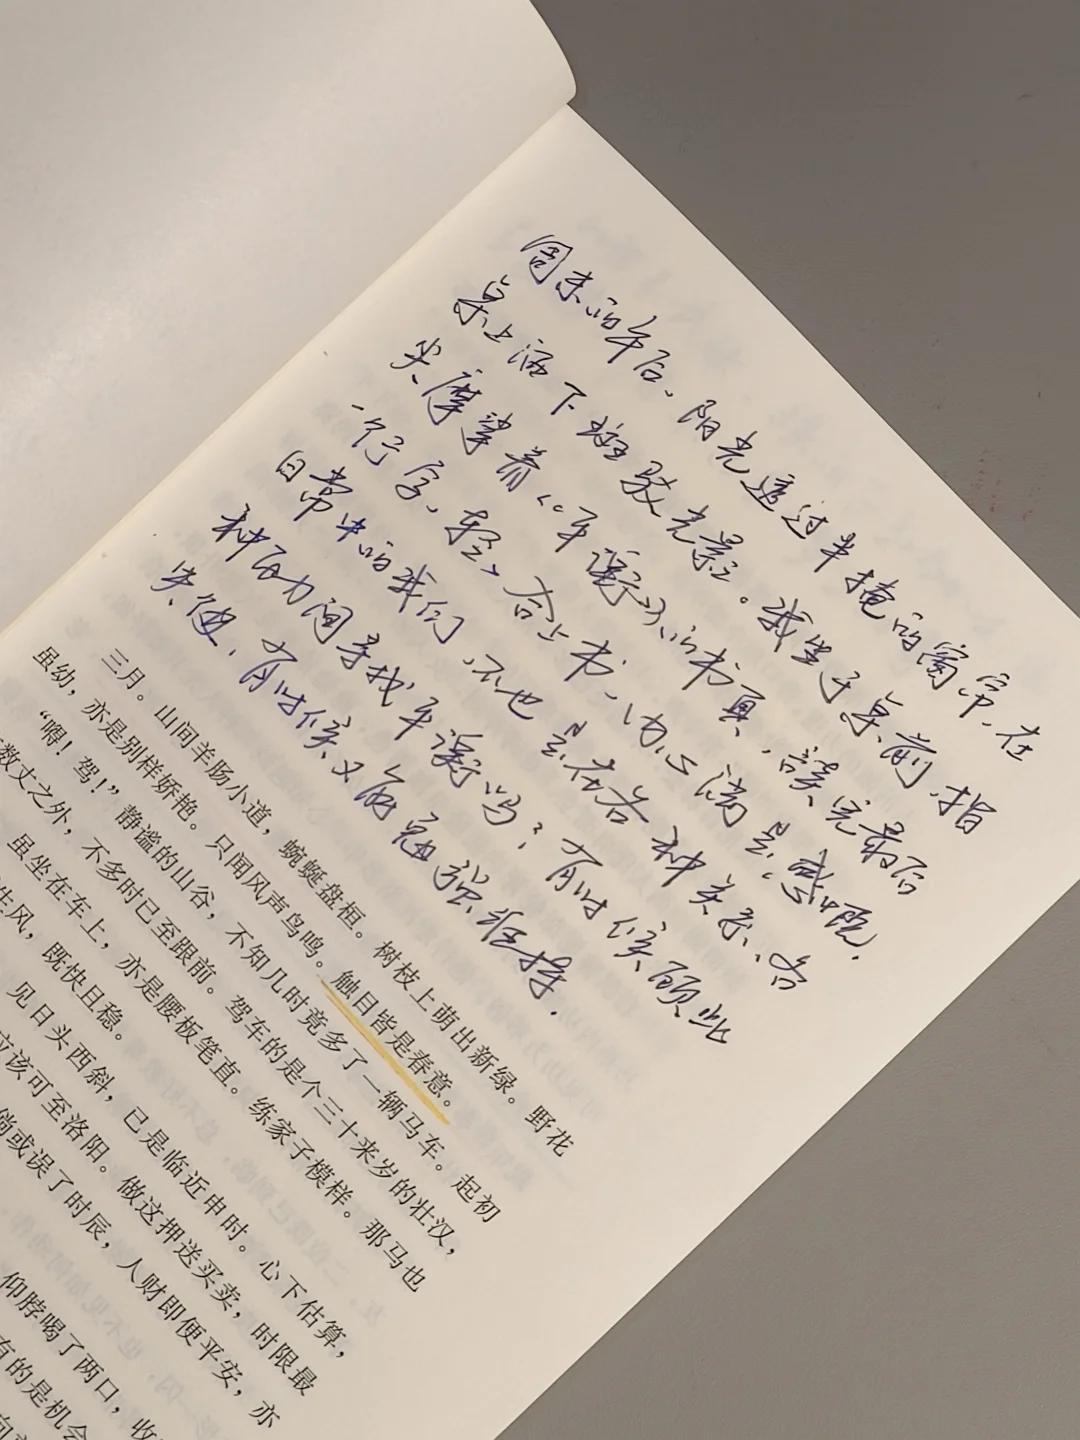 周末的午后、阳光透过半掩的窗帘、在
桌上洒下斑驳光影。我坐于桌前，指
尖摩挲着《平衡》的书页，读完最后
一行字，轻轻合上书，内心满是感慨。
日常中的我们，不也是在各种关系、各
种压力间寻找平衡吗？有时候顾此
失彼，有时候又勉强维持。
三月。山间羊肠小道，蜿蜒盘桓。树枝上萌出新绿。野花
虽幼，亦是别样娇艳。只闻风声鸟鸣。触目皆是春意。
“噚！驾！”静谧的山谷，不知几时竟多了一辆马车。起初
数丈之外，不多时已至跟前。驾车的是个三十来岁的壮汉，
虽坐在车上，亦是腰板笔直。练家子模样。那马也
生风，既快且稳。
见日头西斜，已是临近申时。心下估算，
应该可至洛阳。做这押送买卖，时限最
倘或误了时辰，人财即便平安，亦
仰脖喝了两口，收
有的是机会